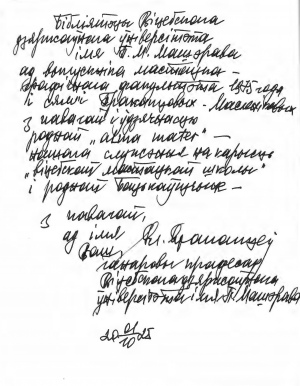 Бібліятэцы Віцебскага
дзяржаўнага ўніверсітэта
імя П. М. Машэрава
ад выпускніка мастацка-
графічнага факультэта 1975 года
і сям'і
З павагай і удзячнасцю
роднай "alma mater" —
нашага служэння на карысць
"Віцебскай мастацкай школы"
і роднай Бацькаўшчыне —
З павагай,
ад імя
Ваш
ганаровы прафесар
Віцебскага дзяржаўнага
ўніверсітэта імя П. Машэрава